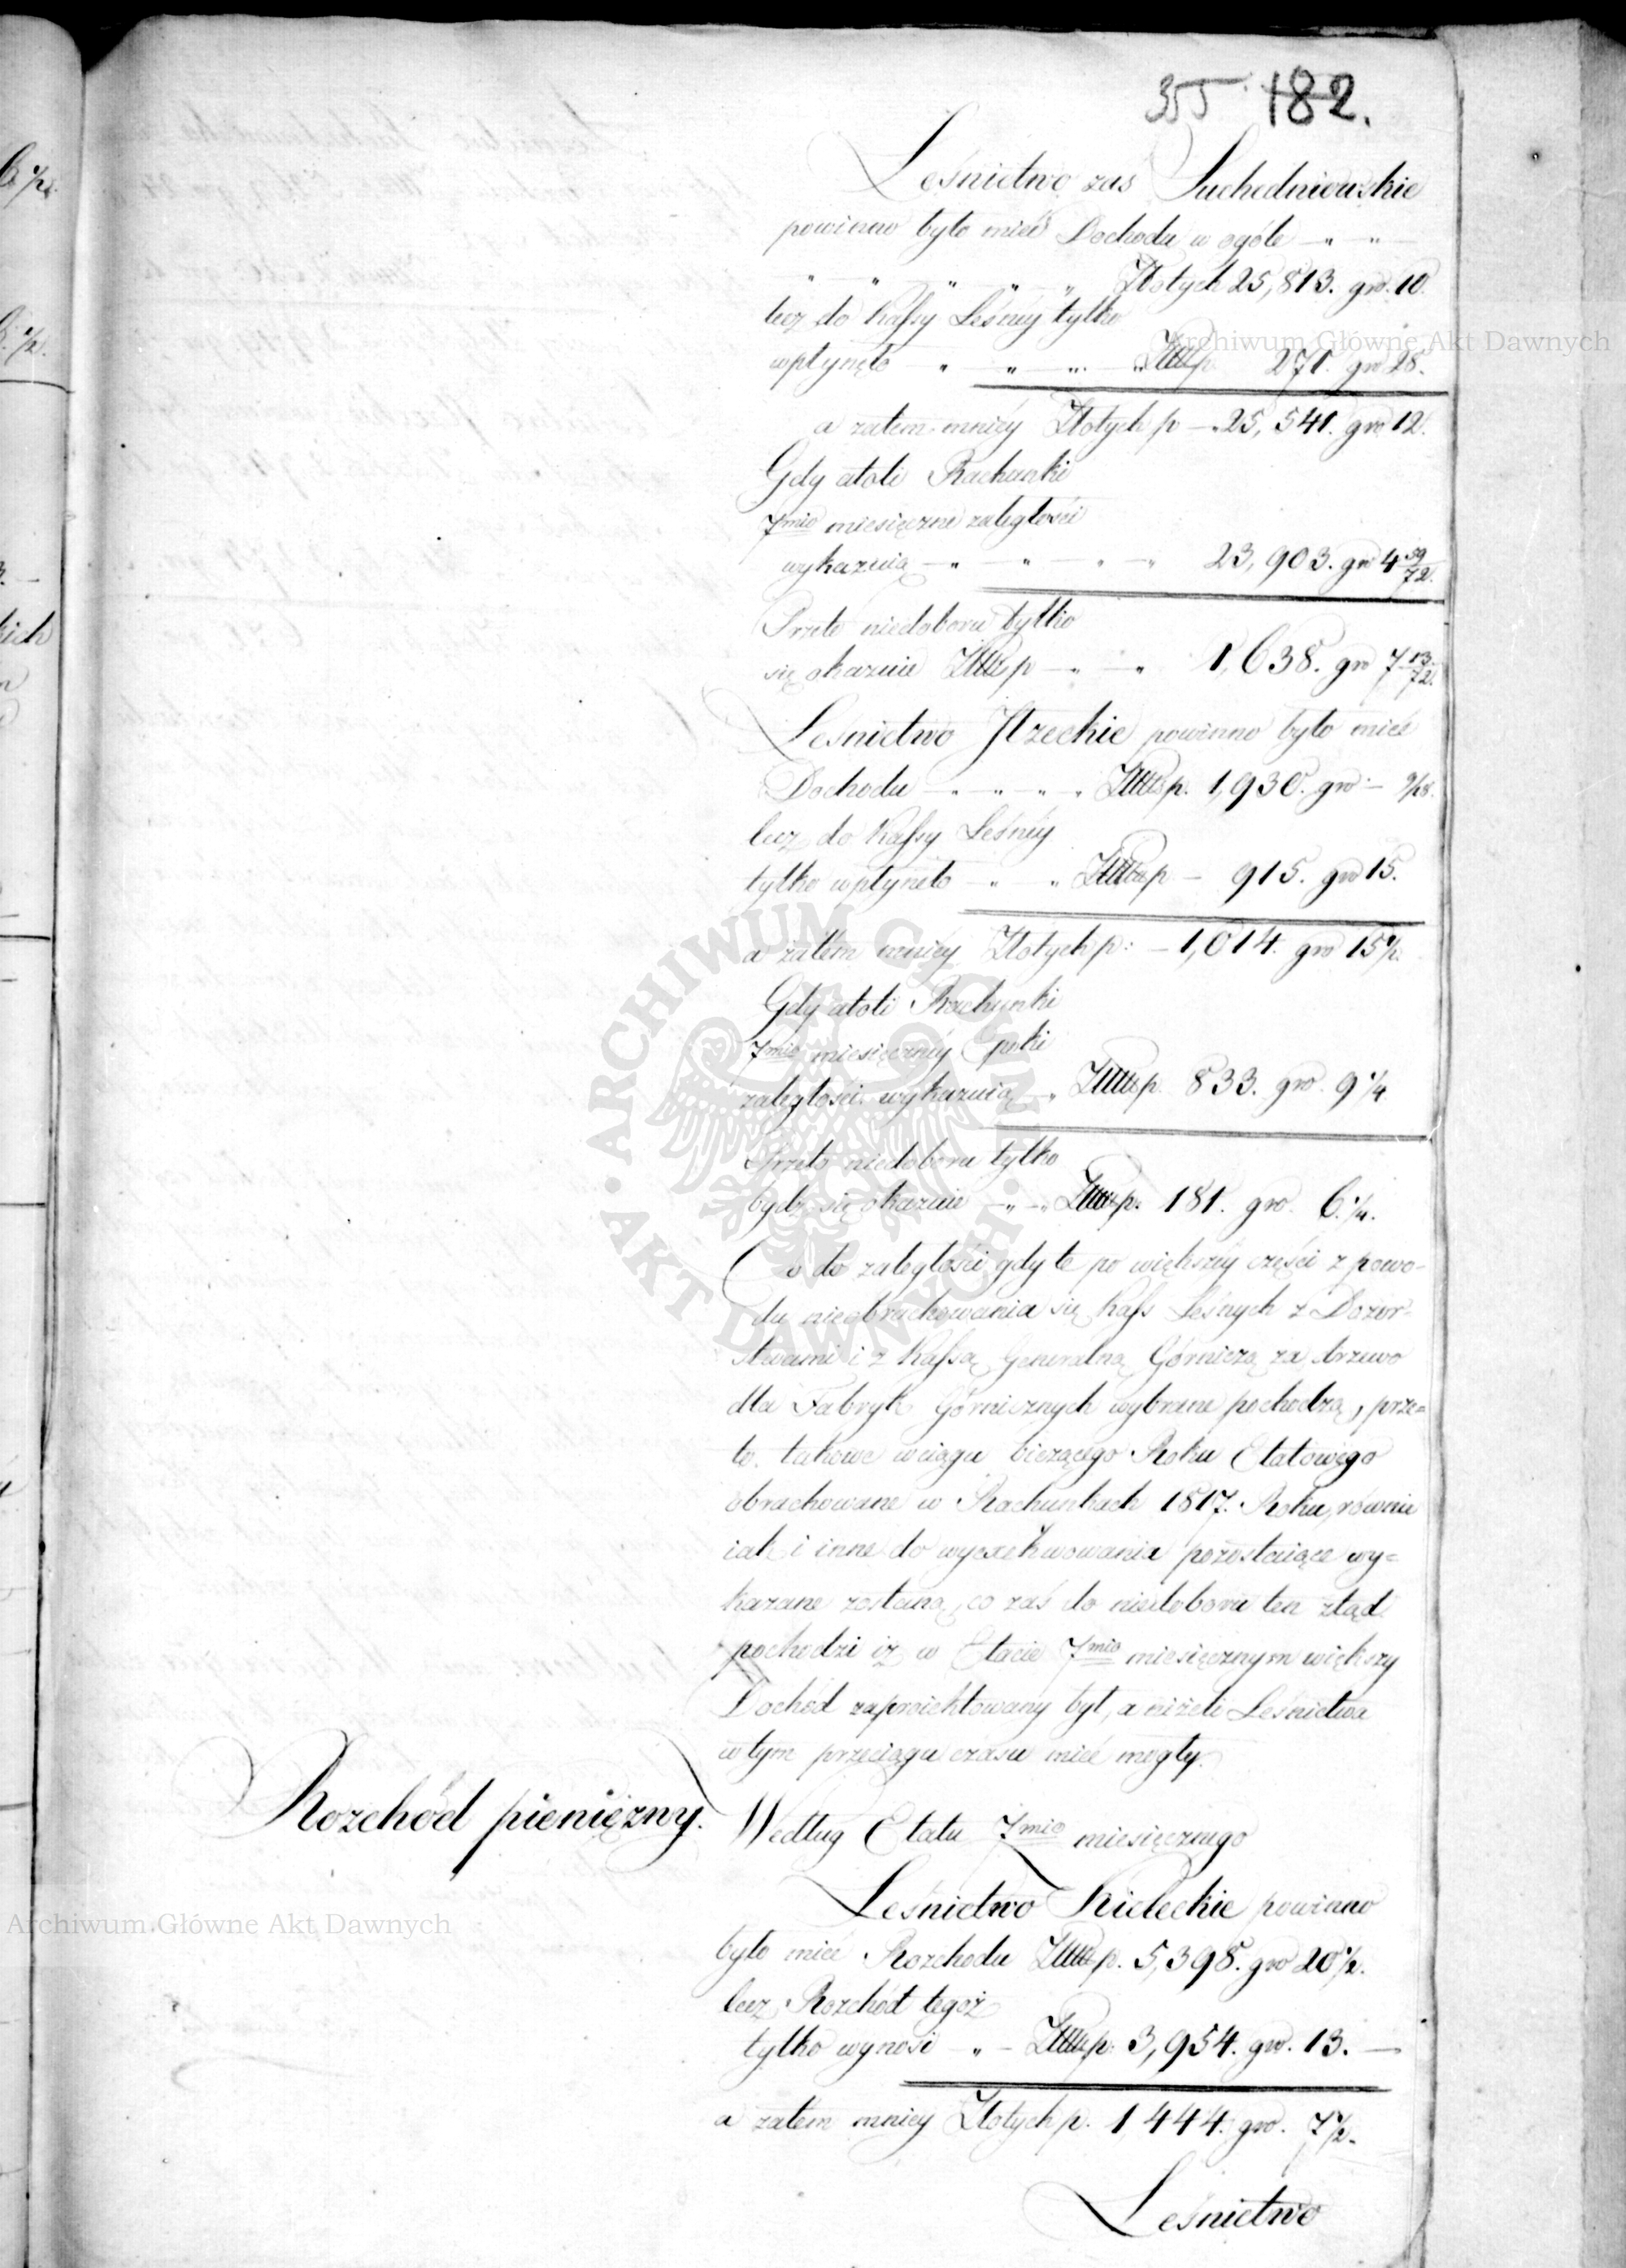 355 182.
Leśnictwo zaś Suchedniowskie
powinno było mieć Dochodu w ogóle — " — "
" " " " " Złotych 25,813. gro. 10.
lecz do Kassy Leśnéy tylko
wpłynęło — " — " — " — " Złłłp. 271. gro 28.
a zatem mniéy Złotych p — 25,541. gro 12.
Gdy atoli Rachunki
7mio miesięczne zaległości
wykazuią — " — " — " — " 23,903. gro 4 59/72.
Przeto niedoboru tylko
się okazuie Złłłp — " — " 1,638. gro 7 13/72.
Leśnictwo Iłzeckie powinno było mieć
Dochodu — " — " — " — " Złłłp. 1,930. gro — 9/18.
lecz do Kassy Leśnéy
tylko wpłynęło — " — " Złłłp — 915. gro 15.
a zatem mniéy Złotych p: — 1,014. gro 15 1/2.
Gdy atoli Rachunki
7mio miesięcznéy Epoki
zaległości wykazuią — " Złłłp. 833. gro. 9 1/4
Przeto niedoboru tylko
bydź się okazuie — " — " Złłłp. 181. gro. 6 1/4.
Co do zaległości gdy te po większéy części z powo-
du nieobrachowania się Kass Leśnych z Dozor-
stwami i z Kassą Generalną Górniczą za drzewo
dla Fabryk Górnicznych wybrane pochodzą, prze=
to takowe wciągu bieżącego Roku Etatowego
obrachowane w Rachunkach 1817. Roku, równie
iak i inne do wyexekwowania pozostaiące wy=
kazane zostaną, co zaś do niedoboru ten ztąd
pochodzi iż w Etacie 7mio miesięcznym większy
Dochód zaproiektowany był, a niżeli Leśnictwa
w tym przeciągu czasu mieć mogły.
Rozchód pieniężny. Według Etatu 7mio miesięcznego
Leśnictwo Kieleckie powinno
było mieć Rozchodu Złłłp. 5,398. gro 20 1/2.
lecz Rozchód tegoż
tylko wynosi — " — Złłłp. 3,954. gro. 13. —
a zatem mniey Złotych p. 1,444. gro. 7 1/2.
Leśnictwo
Archiwum Główne Akt Dawnych
Archiwum Główne Akt Dawnych
ARCHIWUM GŁÓWNE • AKT DAWNYCH •